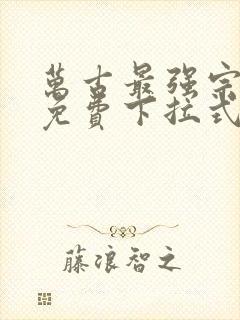 萬古最强宗
免費下拉式
藤浪智之